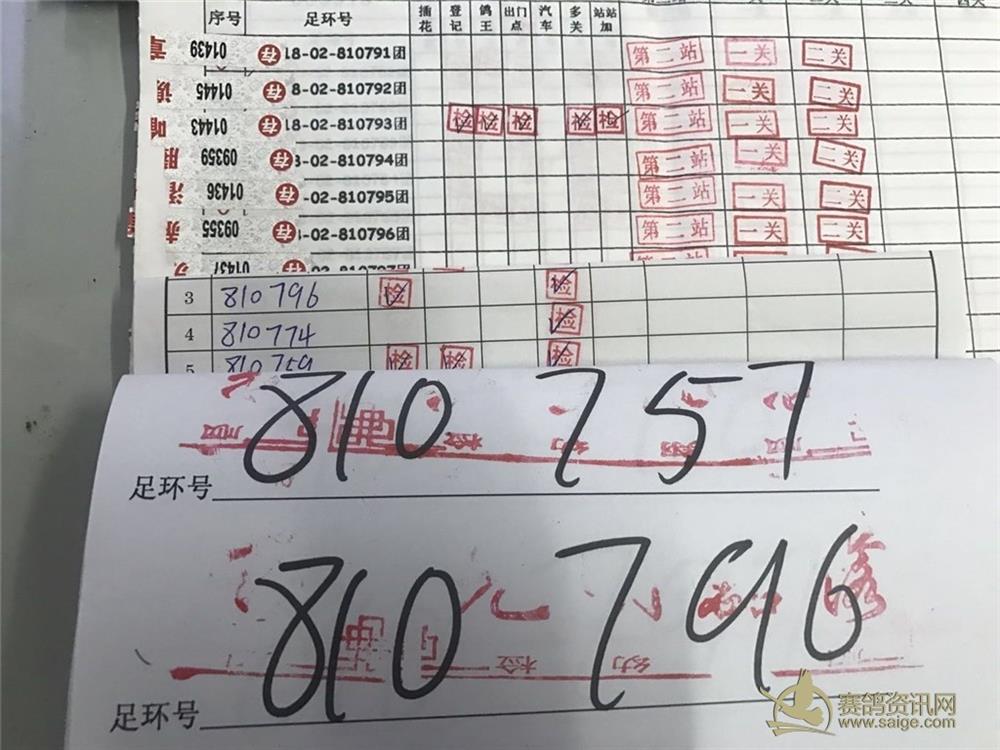 序号 足环号 插花 登记 鸽王 出门点 汽车 多关 站站加
01439 存 18-02-810791团 第二站 一关 二关
01445 存 8-02-810792团 第二站 一关 二关
01443 存 18-02-810793团 检 检 检 检 检 第二站 一关 二关
09359 存 3-02-810794团 第二站 一关 二关
01436 存 -02-810795团 第二站 一关 二关
09355 存 1-02-810796团 第二站 一关 二关
01437 存 02-810797团
3 810796 检 检
4 810774 检
5 810759 检 检 检
足环号 810757
足环号 810796
赛鸽资讯网
www.saige.com